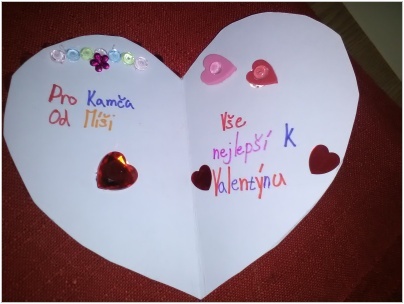 Pro Kamča
Od Míši
Vše
nejlepší k
Valentýnu